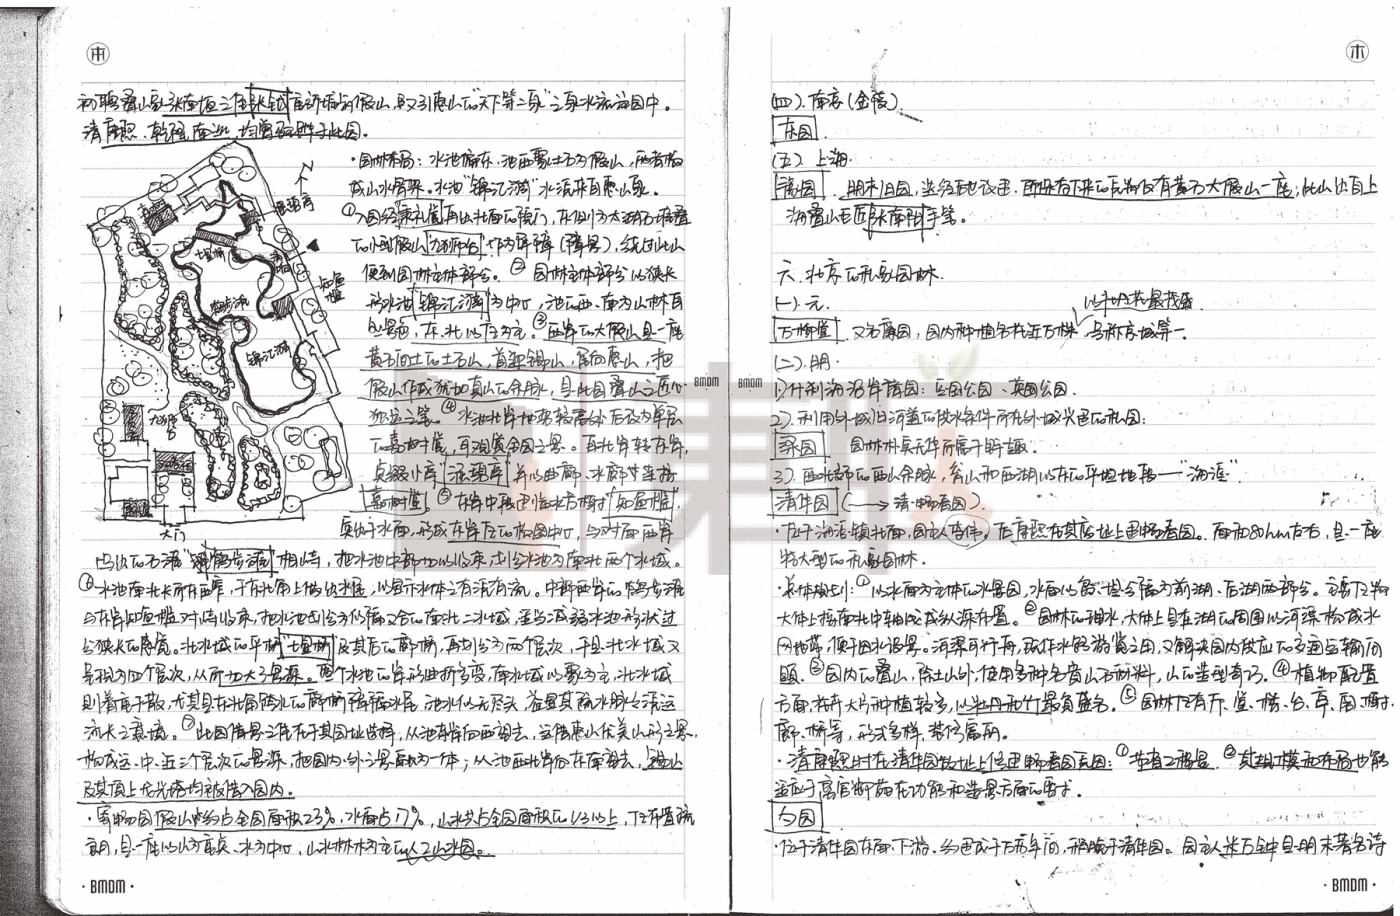 初聘叠山家张南垣之侄张钺重新堆筑假山,又引惠山的“天下第二泉”之泉水流注园中。
清康熙、乾隆南巡,均曾驻跸于此园。
·园林布局:水池偏东,池西聚土石为假山,两者构
成山水骨架。水池“锦汇漪”水源来自惠山泉。
①入园经秉礼堂再出北面的院门,东侧为太湖石堆叠
的小型假山九狮台作为屏障(障景),绕过此山
便到园林主体部分。②园林主体部分以狭长
形水池锦汇漪为中心,池的西、南为山林自
然景色,东、北以建筑为主。③西岸的大假山是一座
黄石间土的土石山,首迎锡山,尾向惠山,把
假山作成犹如真山的余脉,是此园叠山之匠心
独运之笔。④水池北岸地势较高处后改为单层
的嘉树堂,可观赏全园之景。自北岸转东岸,
点缀小亭涵碧亭并以曲廊、水廊连接
嘉树堂。⑤东岸中段建临水方榭知鱼槛,
突出于水面,形成东岸建筑的构图中心,与对面西岸
凸出的石滩鹤步滩相峙,把水池中部加以收束,划分水池为南北两个水域。
⑥水池南北长而东西窄,于东北角上做出水尾,以显示水体之有源有流。中部西岸的鹤步滩
与东岸知鱼槛对峙收束,把水池划分为似隔又合的南北二水域,适当减弱水池形状过
分狭长的感觉。北水域的平桥七星桥及其后的廊桥,再划分为两个层次,于是北水域又
呈现为四个层次,从而加大了景深。整个水池的岸形曲折多变,南水域以聚为主,北水域
则着重于散,尤其是东北角跨水的廊桥障隔水尾,池水似无尽头,益显其疏水脉脉源远
流长之意境。⑦此园借景之佳在于其园址选择,从池东岸向西望去,呈借惠山优美山形之景,
构成远、中、近三个层次的景深,把园内外之景融为一体;从池西北岸向东南望去,锡山
及其顶上龙光塔均被借入园内。
·寄畅园假山约占全园面积23%,水面占17%,山水共占全园面积的1/3以上,建筑布置疏
朗,是一座以山为重点、水为中心、山水林木为主的人工山水园。
大门
七星桥
鹤步滩
锦汇漪
知鱼槛
九狮台
涵碧亭
·BMDM·
BMDM
(四).南京(金陵)
东园.
(五).上海.
豫园. 明末旧园,迭经改建,而留存下来的仅有黄石大假山一座;此山出自上
海叠山名匠张南阳手笔。
六、北京的私家园林.
(一).元.
以牡丹花最茂盛.
万柳堂. 又名廉园,园内种植名花近万株 号称京城第一.
(二).明.
1).什刹海沿岸诸园: 定国公园、英国公园.
2).利用外城旧河道的供水条件而在外城兴建的私园:
梁园 园林朴实无华而属于野趣.
3).西北郊的西山余脉,有山和西湖以东的平坦地段——“海淀”.
清华园 (→清·畅春园).
·位于海淀镇北面,园主人李伟。后康熙在其废址上建畅春园。面积80hm左右,是一座
特大型的私家园林.
·总体规划:①以水面为主体的水景园,水面以岛、堤分隔为前湖、后湖两部分。主要建筑
大体上按南北中轴成纵深布置。②园林的理水,大体上是在湖的周围以河渠构成水
网地带,便于因水设景。河渠可行舟,既作水路游览之用,又解决园内供应的交通运输问
题。③园内的叠山,除土山外,使用多种名贵山石材料,山的造型奇巧。④植物配置
方面,花卉大片种植较多,以牡丹和竹最负盛名。⑤园林建筑有厅、堂、楼、台、亭、阁、榭、
廊、桥等,形式多样,装修富丽。
·清康熙时在清华园故址上修建畅春园原因:①节省工程量.②其规模和布局也能
适应于离宫御苑在功能和造景方面的要求.
勺园
·位于清华园东面、下游,约建成于万历年间,稍晚于清华园。园主人米万钟是明末著名诗
BMDM
·BMDM·